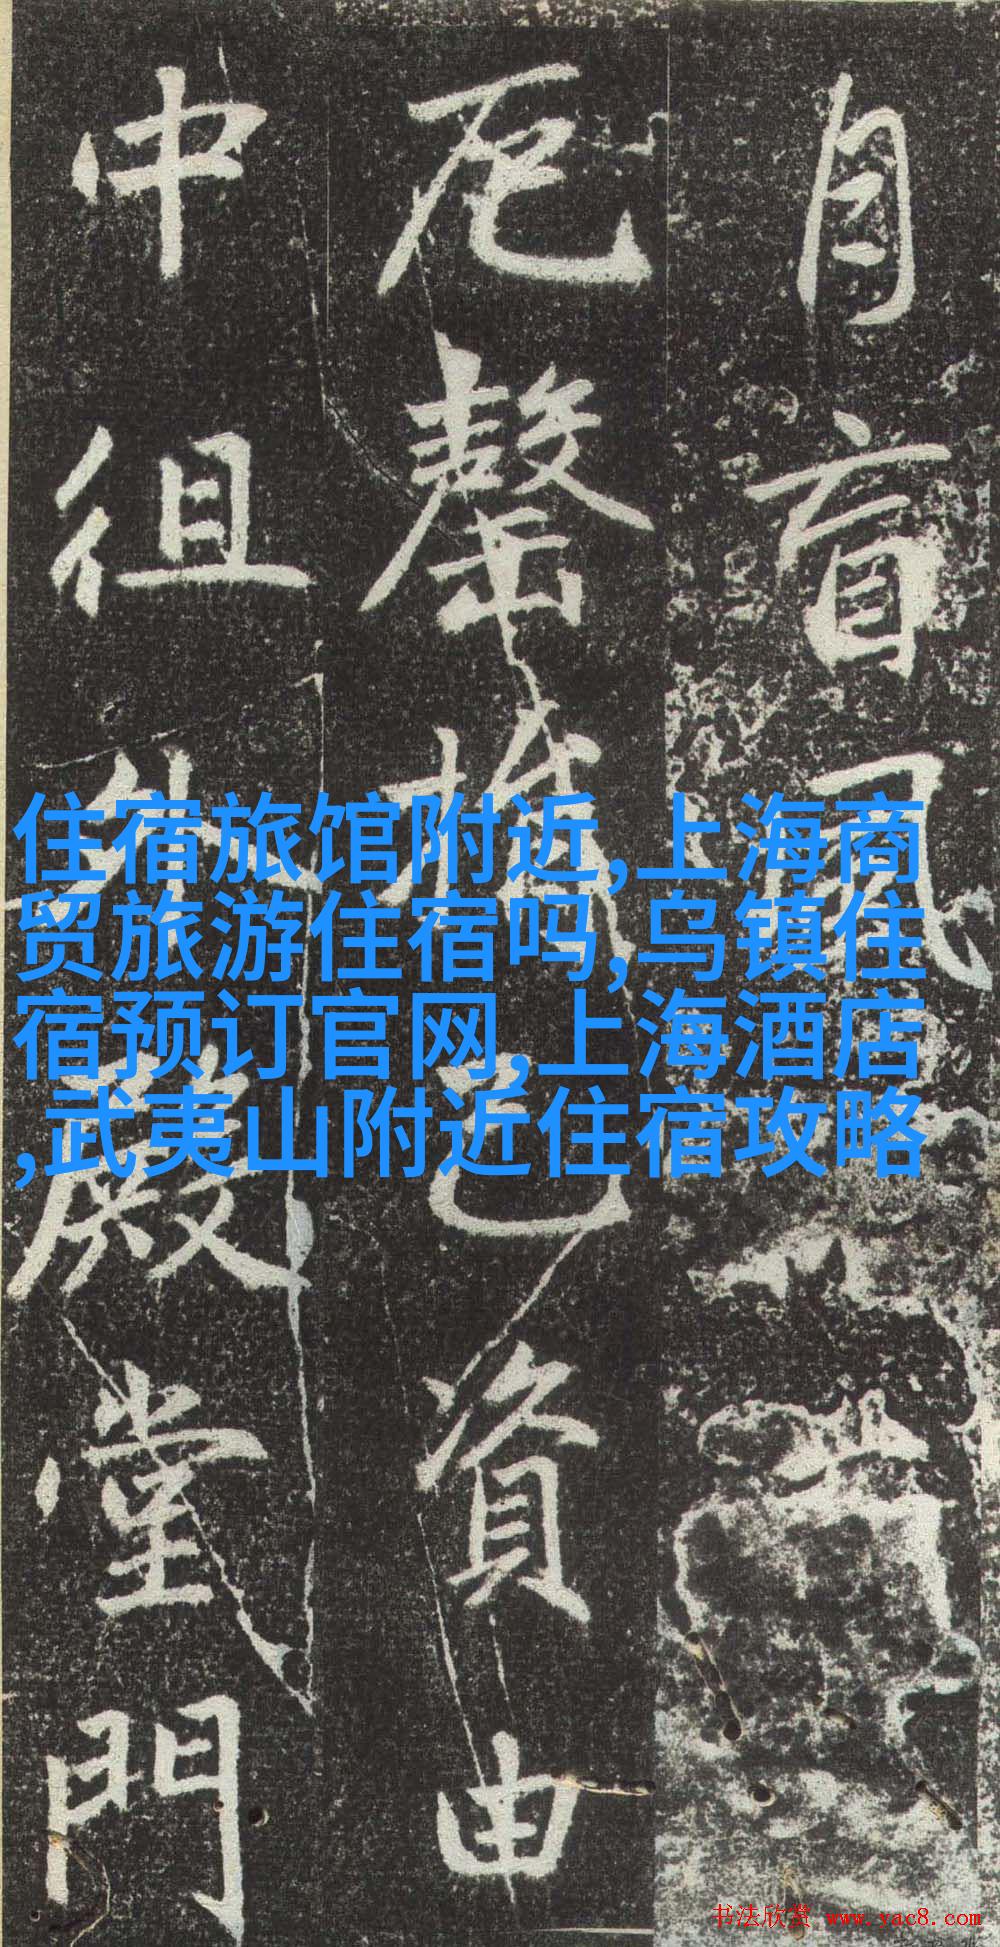 自盲風
厄罄已資由
中徂外殿堂門
住宿旅馆附近,上海商
贸旅游住宿吗,乌镇住
宿预订官网,上海酒店
,武夷山附近住宿攻略
书法欣赏 www.yac8.com